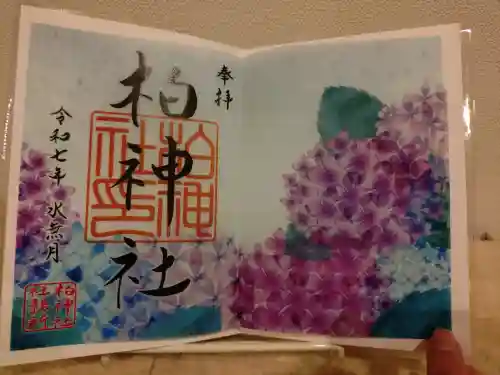 奉拝
柏神社
柏神社印
令和七年 水無月
柏神社